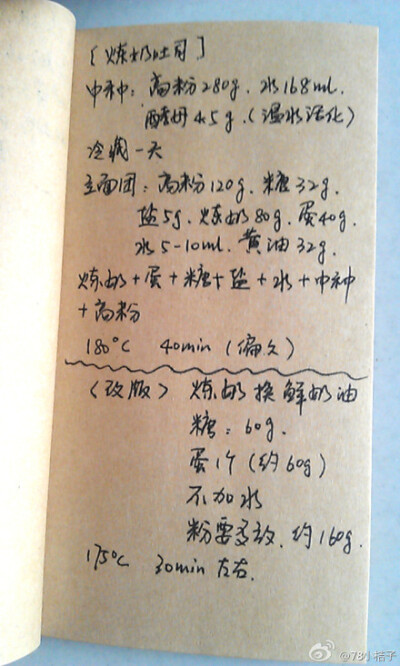 [炼奶吐司]
中种：高粉280g. 水168ml.
酵母4.5g.（温水活化）
冷藏一天
主面团：高粉120g. 糖32g.
盐5g. 炼奶80g. 蛋40g.
水5-10ml. 黄油32g.
炼奶+蛋+糖+盐+水+中种
+高粉
180°C 40min（偏久）
〈改版〉 炼奶换鲜奶油
糖：60g.
蛋1个（约60g）
不加水
粉要多放、约160g.
175°C 30min 左右.
@78小桔子